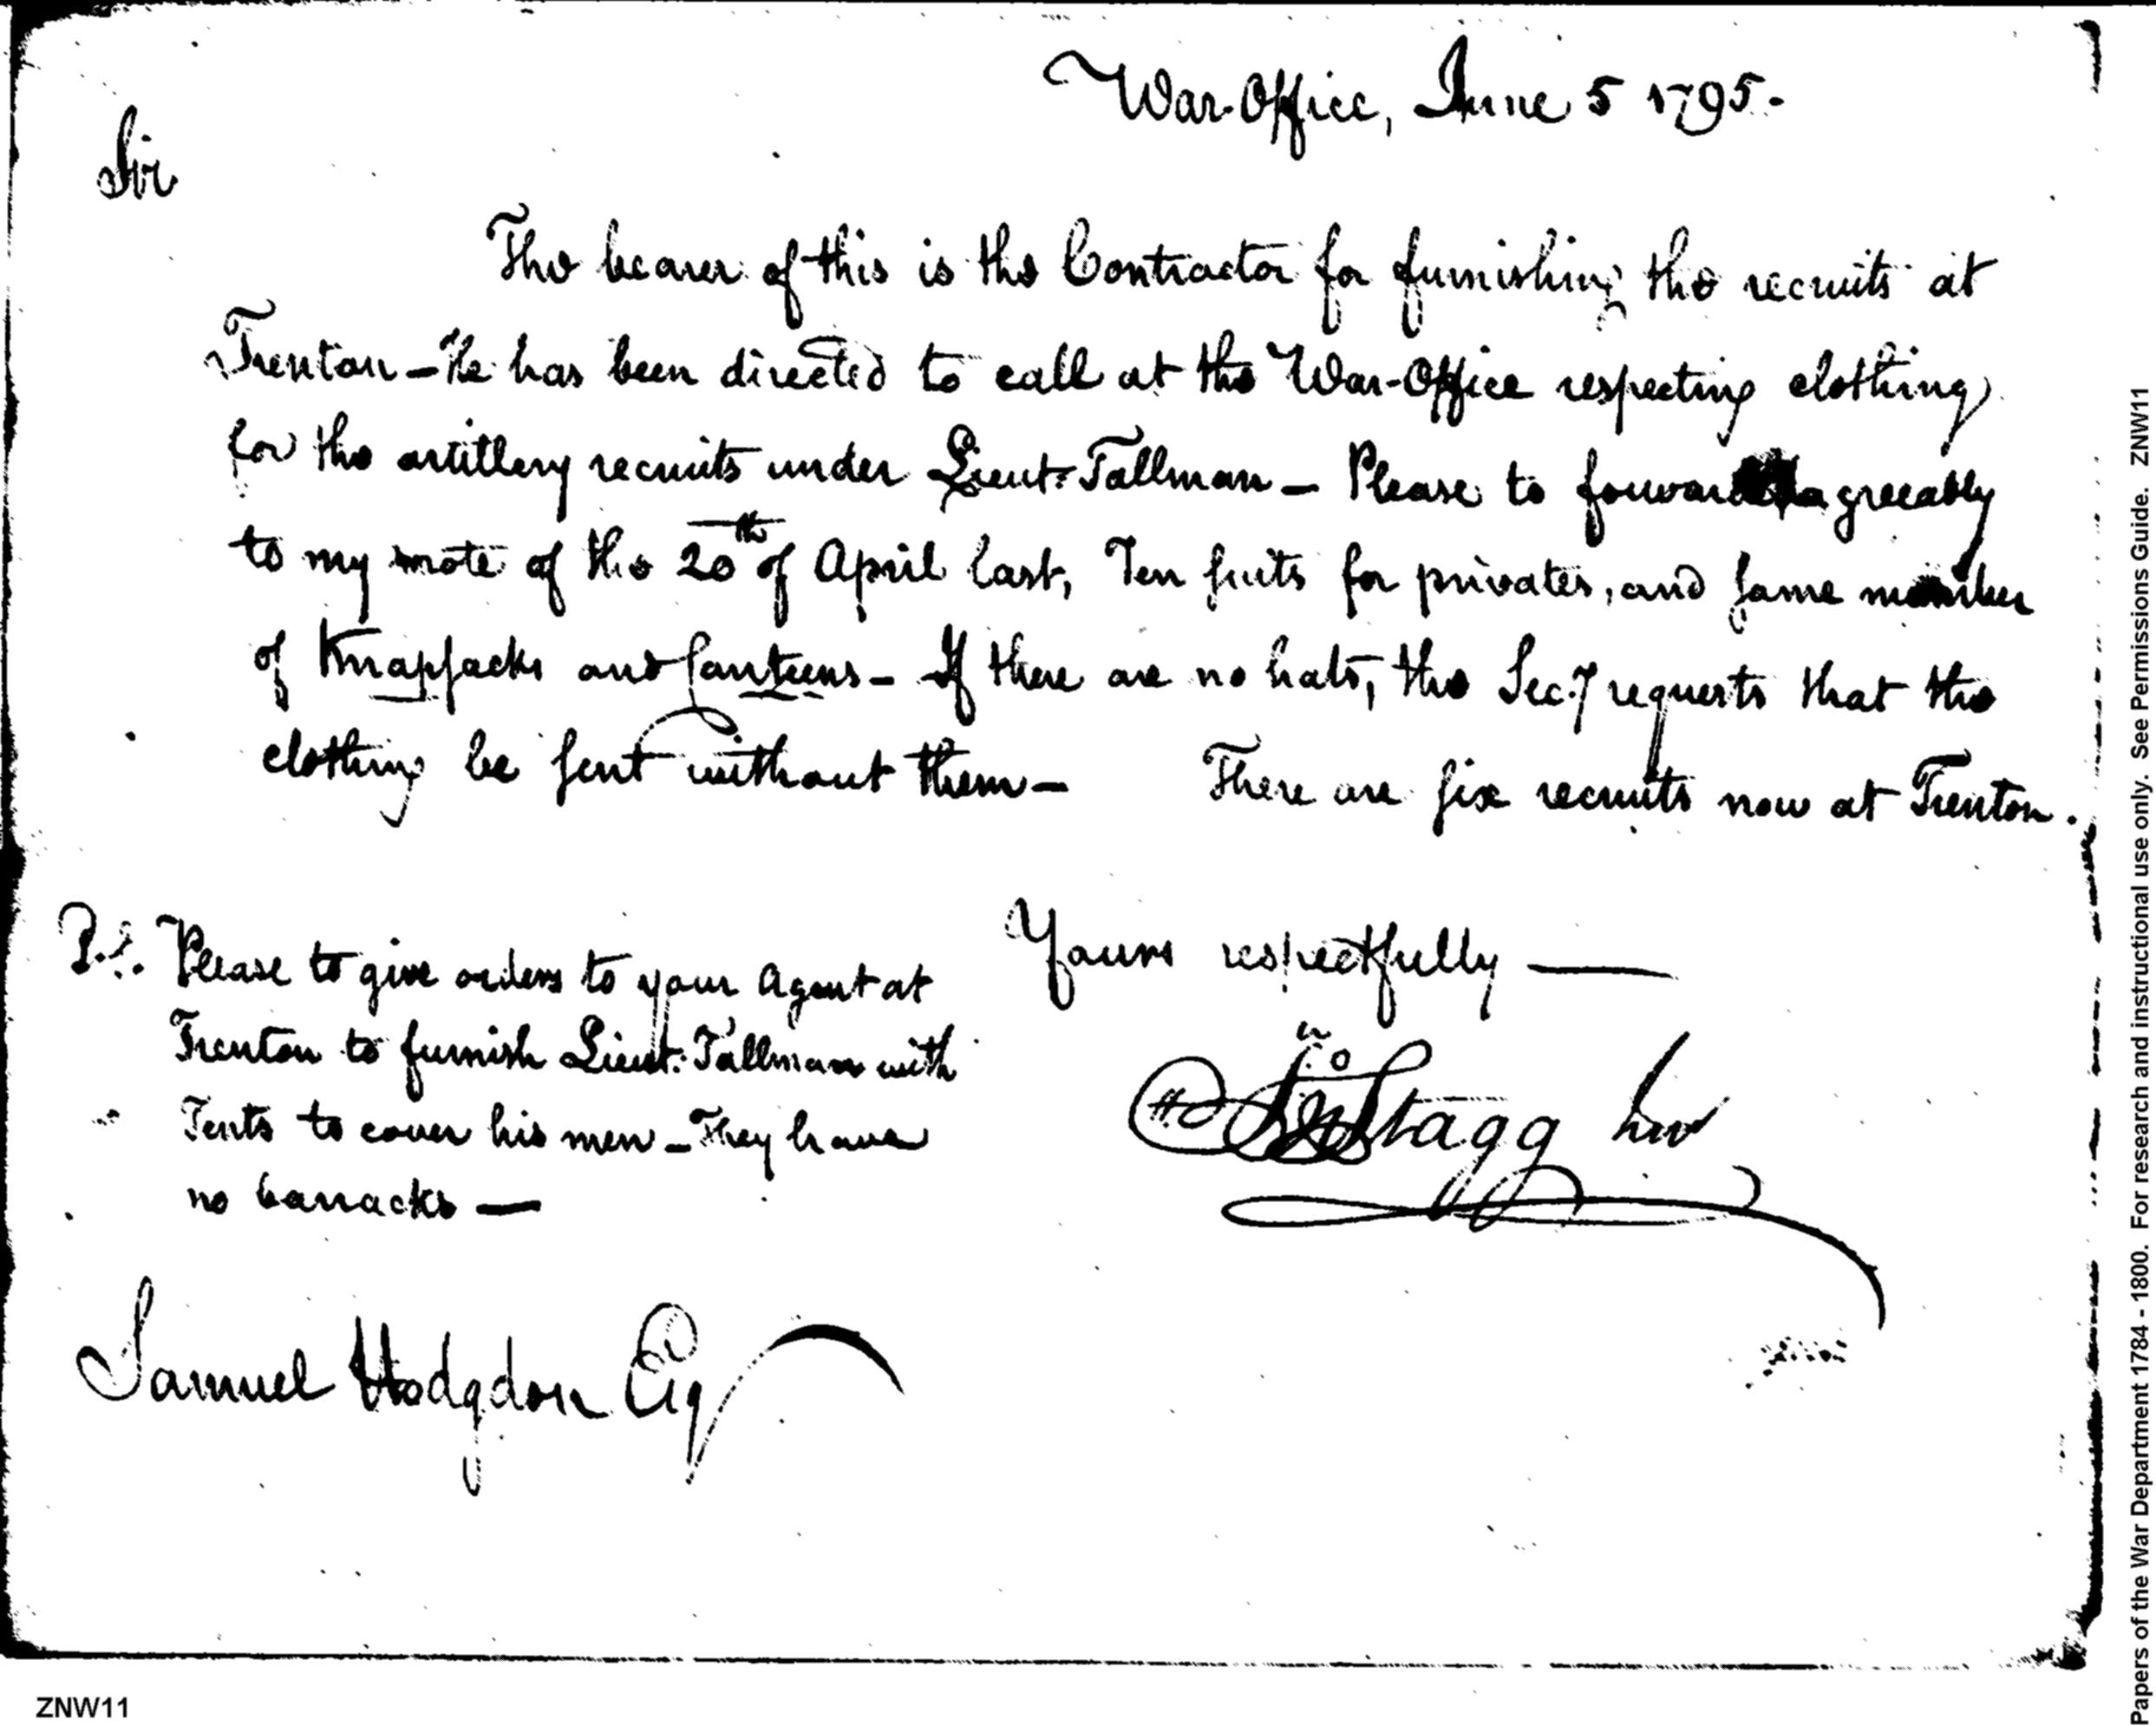 War-Office, June 5 1795.
Sir
The bearer of this is the Contractor for furnishing the recruits at
Trenton - He has been directed to call at the War-Office respecting clothing
for the artillery recruits under Lieut: Tallman - Please to forward agreeably
to my note of the 20th of April last, Ten suits for privates, and same number
of Knapsacks and Canteens - If there are no hats, the Secy requests that the
clothing be sent without them - There are six recruits now at Trenton.
Yours respectfully —
Jno Stagg Junr
P.S. Please to give orders to your Agent at
Trenton to furnish Lieut: Tallman with
Tents to cover his men - They have
no barracks —
Samuel Hodgdon Esq
ZNW11
Papers of the War Department 1784 - 1800. For research and instructional use only. See Permissions Guide. ZNW11